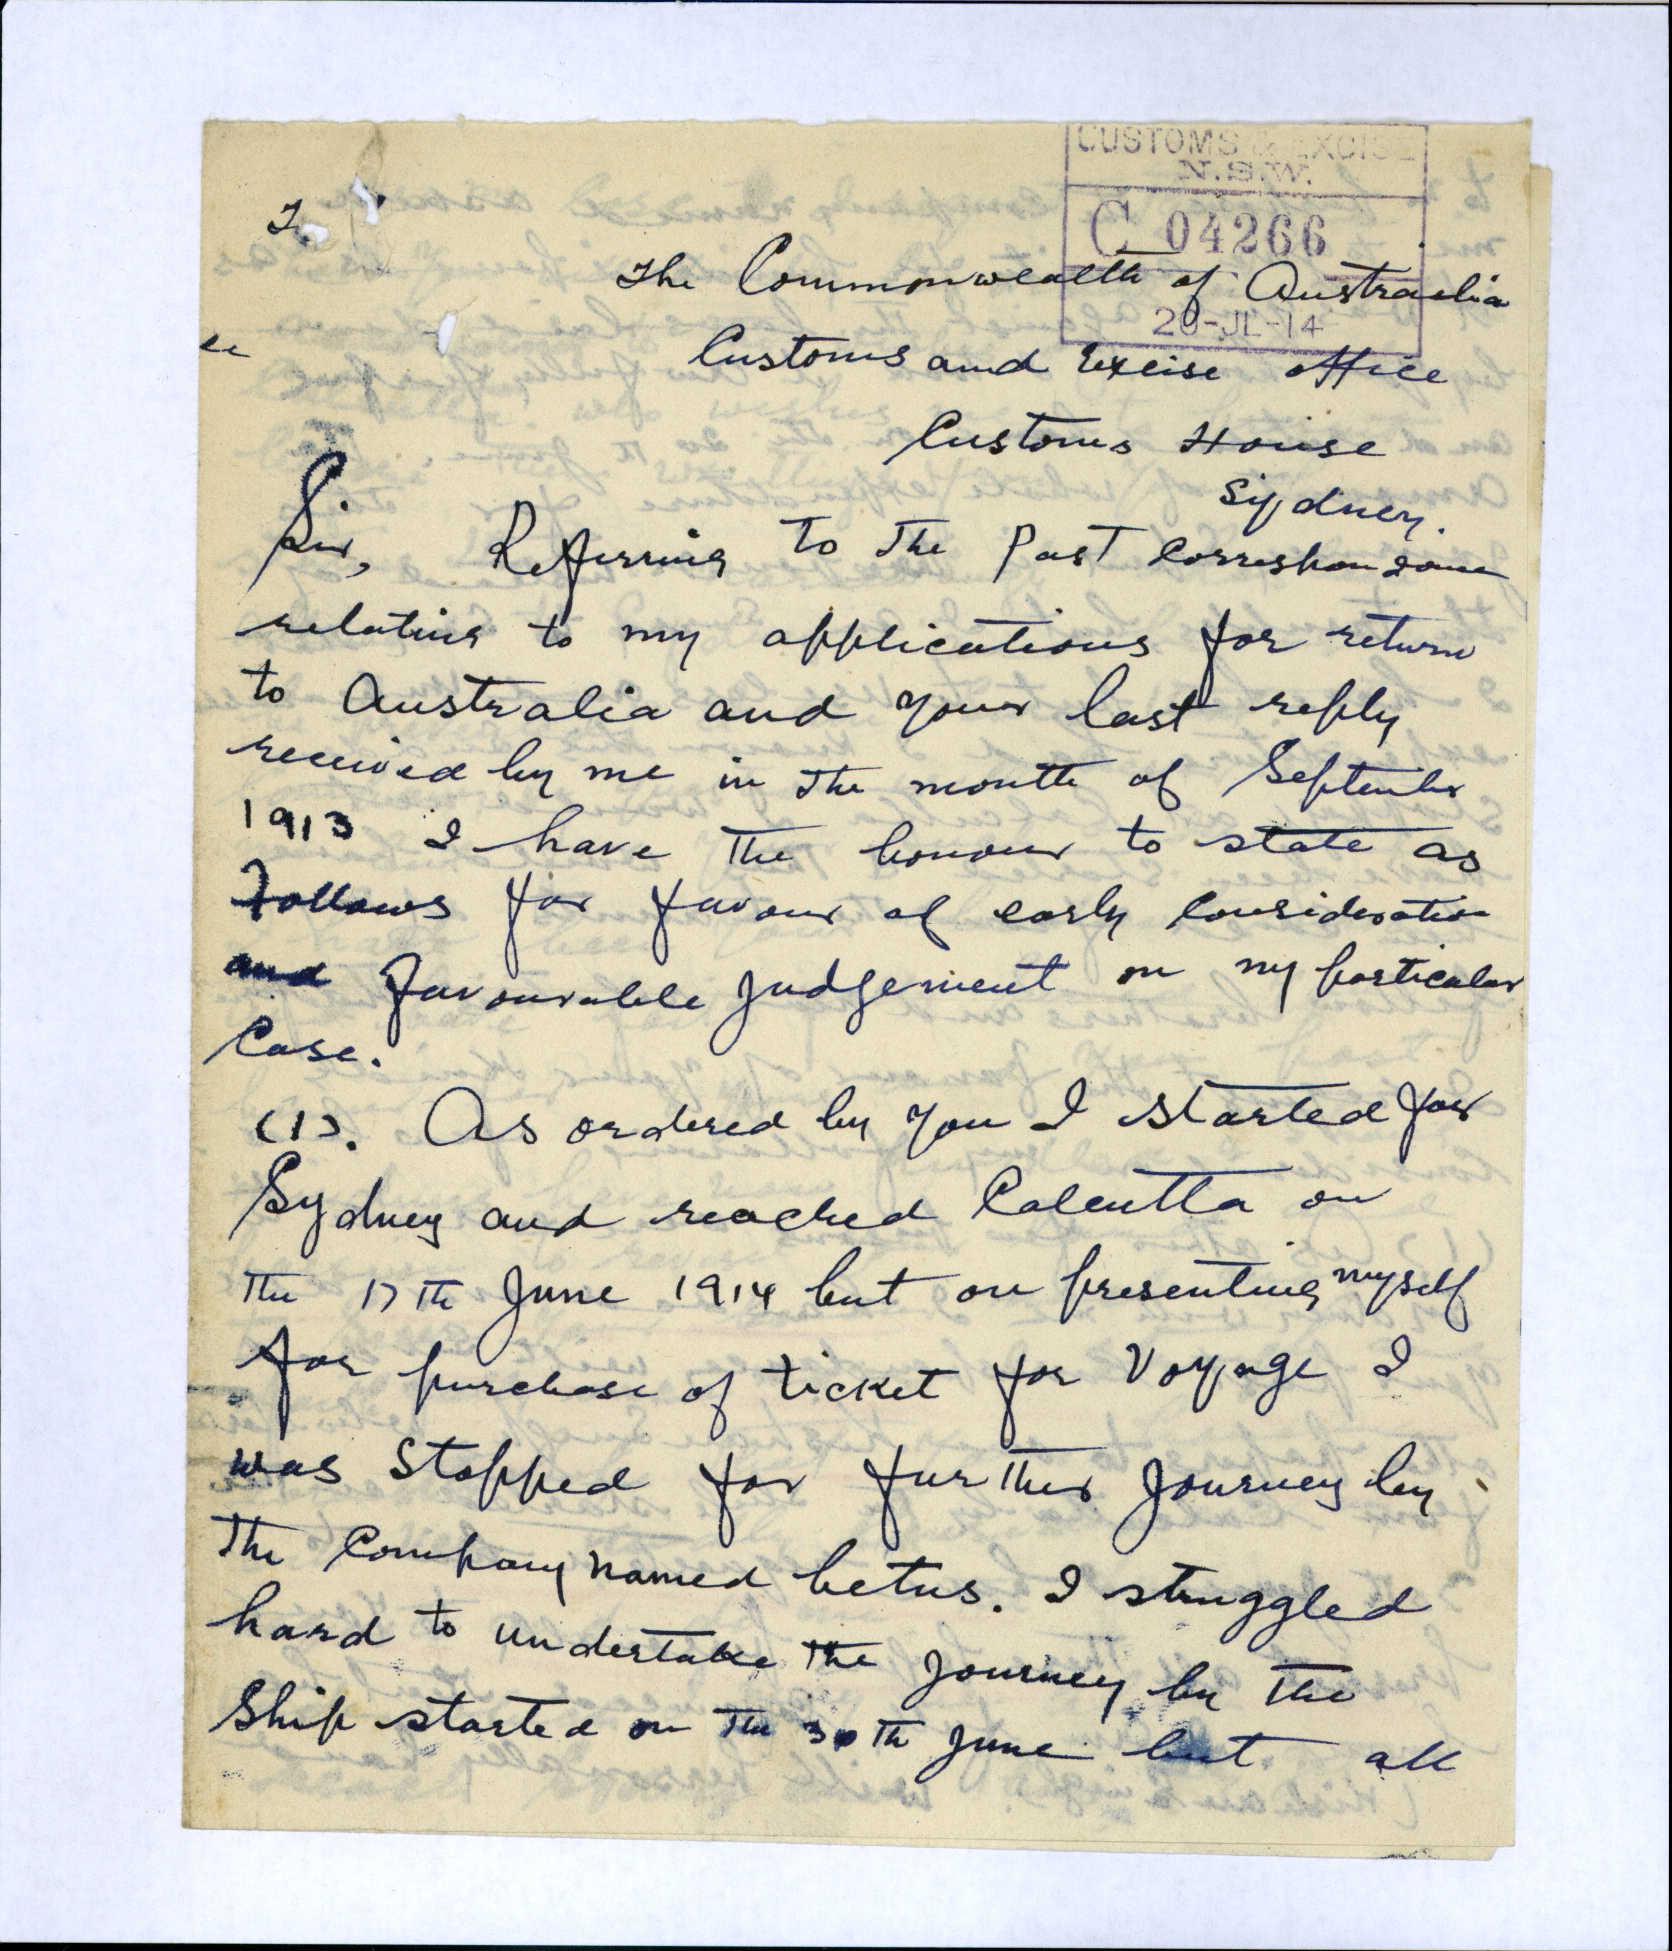 CUSTOMS & EXCISE
N.S.W.
C 04266
20-JL-14
To
The Commonwealth of Australia
Customs and Excise office
Customs House
Sydney.
Sir, Referring to the Past Correspondance
relating to my applications for return
to Australia and your last reply
received by me in the month of September
1913 I have the honour to state as
follows for favour of early consideration
and favourable judgement on my particular
Case.
(1). As ordered by you I started for
Sydney and reached Calcutta on
the 17th June 1914 but on presenting myself
for purchase of ticket for Voyage I
was stopped for further Journey by
the Company named betus. I struggled
hard to undertake the journey by the
Ship started on the 30th June but all